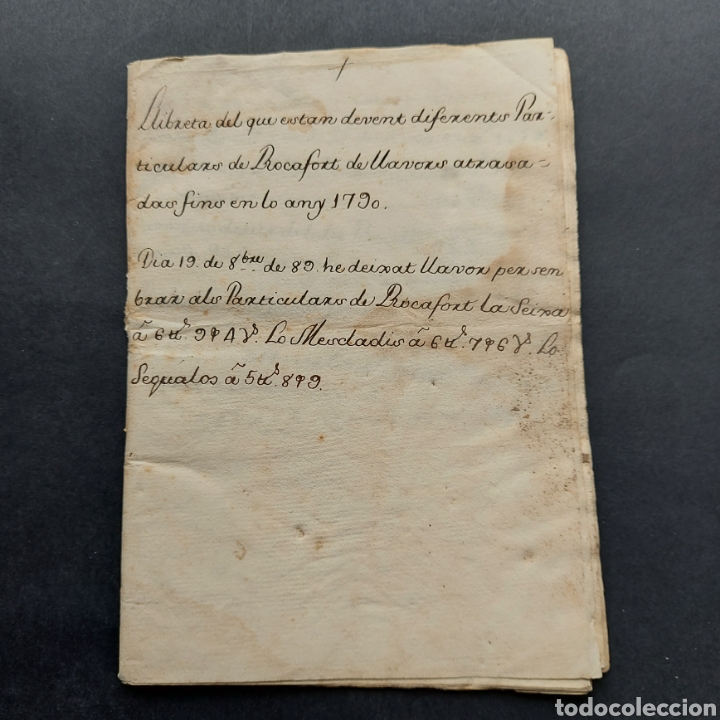 +
Llibreta del que estan devent diferents Par-
ticulars de Rocafort de llavors atrasa-
das fins en lo any 1790.
Dia 19. de 8bre de 89. he deixat llavor per sem
brar als Particulars de Rocafort la Seixa
â 6 tt.s 9 φ 4 Ys. Lo Mescladis â 6 tt.s 7 φ 6 Ys. Lo
Segualos â 5 tt.s 8 φ 9.
todocoleccion